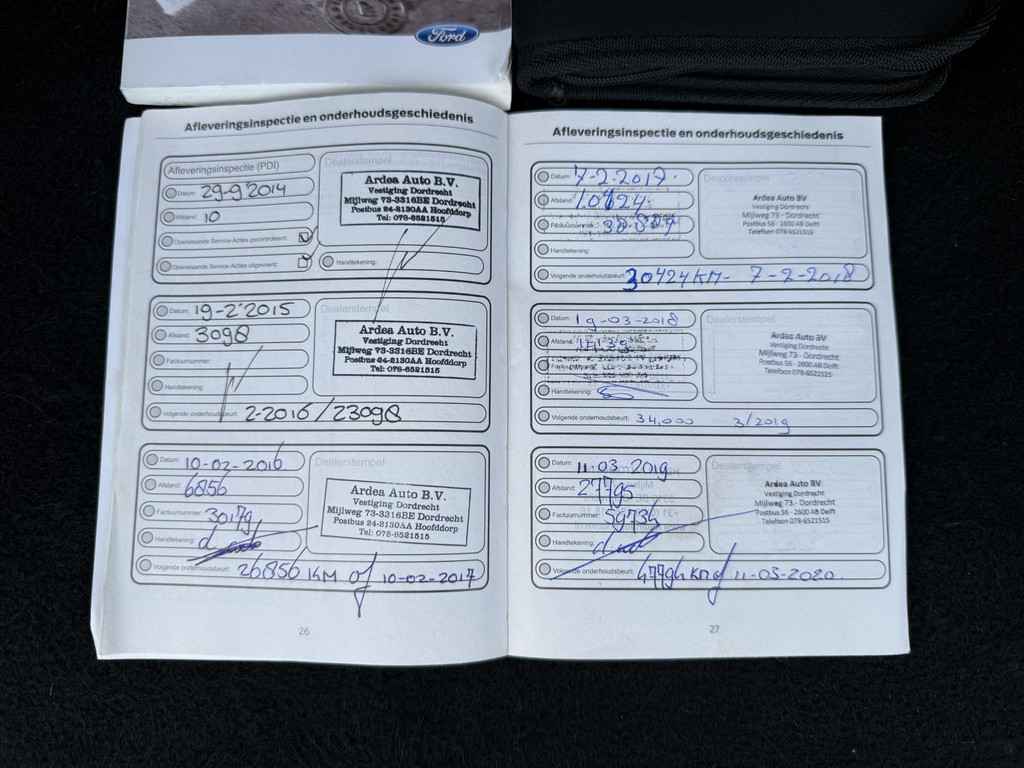 Ford
Afleveringsinspectie en onderhoudsgeschiedenis
Afleveringsinspectie (PDI)
Datum: 29-9-2014
Afstand: 10
Openstaande Service-Acties gecontroleerd:
Openstaande Service-Acties uitgevoerd:
Dealerstempel
Ardea Auto B.V.
Vestiging Dordrecht
Mijlweg 73-3316BE Dordrecht
Postbus 24-2130AA Hoofddorp
Tel: 078-6521515
Handtekening:
Datum: 19-2-2015
Afstand: 3098
Factuurnummer:
Handtekening:
Volgende onderhoudsbeurt: 2-2016/23098
Dealerstempel
Ardea Auto B.V.
Vestiging Dordrecht
Mijlweg 73-3316BE Dordrecht
Postbus 24-2130AA Hoofddorp
Tel: 078-6521515
Datum: 10-02-2016
Afstand: 6856
Factuurnummer: 30179
Handtekening:
Volgende onderhoudsbeurt: 26856 KM of 10-02-2017
Dealerstempel
Ardea Auto B.V.
Vestiging Dordrecht
Mijlweg 73-3316BE Dordrecht
Postbus 24-2130AA Hoofddorp
Tel: 078-6521515
26
Afleveringsinspectie en onderhoudsgeschiedenis
Datum: 7-2-2017
Afstand: 10424
Factuurnummer:
Handtekening:
Volgende onderhoudsbeurt: 30424 KM- 7-2-2018
Dealerstempel
Ardea Auto BV
Vestiging Dordrecht
Mijlweg 73 - Dordrecht
Postbus 56 - 2600 AB Delft
Telefoon 078-6521515
Datum: 19-03-2018
Afstand:
Factuurnummer:
Handtekening:
Volgende onderhoudsbeurt: 34.000 3/2019
Dealerstempel
Ardea Auto BV
Vestiging Dordrecht
Mijlweg 73 - Dordrecht
Postbus 56 - 2600 AB Delft
Telefoon 078-6521515
Datum: 11-03-2019
Afstand: 27795
Factuurnummer: 59734
Handtekening:
Volgende onderhoudsbeurt: 47794 KM of 11-03-2020.
Dealerstempel
Ardea Auto BV
Vestiging Dordrecht
Mijlweg 73 - Dordrecht
Postbus 56 - 2600 AB Delft
Telefoon 078-6521515
27